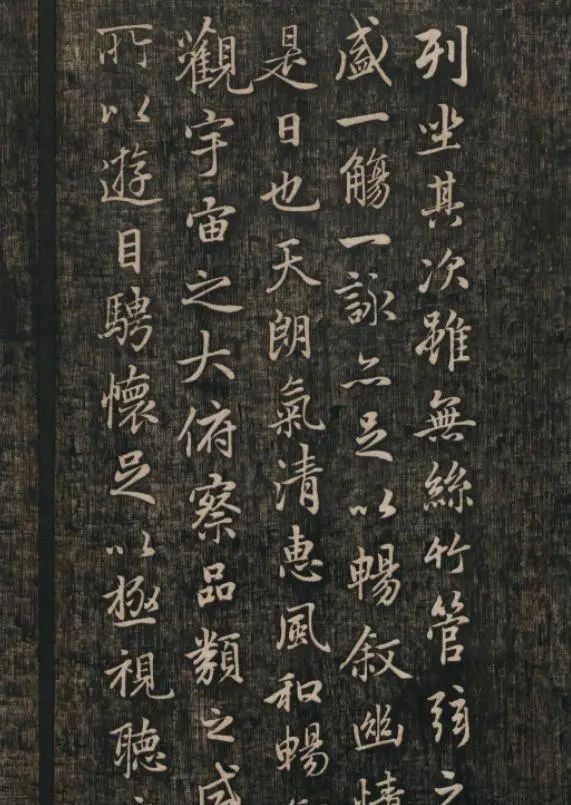 列坐其次雖無絲竹管弦之
盛一觴一詠亦足以暢敘幽情
是日也天朗氣清惠風和暢
觀宇宙之大俯察品類之盛
所以遊目騁懷足以極視聽